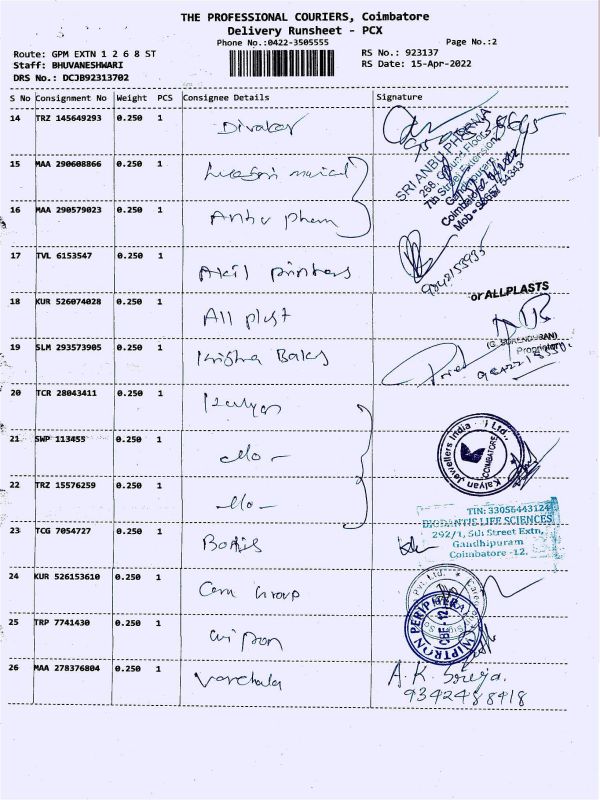 THE PROFESSIONAL COURIERS, Coimbatore
Delivery Runsheet - PCX
Phone No.:0422-3505555
Page No.:2
Route: GPM EXTN 1 2 6 8 ST
RS No.: 923137
Staff: BHUVANESHWARI
RS Date: 15-Apr-2022
DRS No.: DCJB92313702
S No Consignment No Weight PCS Consignee Details Signature
14 TRZ 145649293 0.250 1 Divakar
15 MAA 290608866 0.250 1
16 MAA 290579023 0.250 1 Anbu pharm
SRI ANBU PHARMA
7th Street Extension
Gandhipuram
Coimbatore
17 TVL 6153547 0.250 1 Akil printers
9042153935
18 KUR 526074028 0.250 1 All plast
or ALLPLASTS
Proprietor
19 SLM 293573905 0.250 1 Krishna Bakes
20 TCR 28043411 0.250 1 Kalyan
21 SWP 113455 0.250 1 -do-
Kalyan Jewellers India Ltd.,
COIMBATORE
22 TRZ 15576259 0.250 1 -do-
TIN: 33056443124
BIODANTIS LIFE SCIENCES
292/1, 5th Street Extn,
Gandhipuram
Coimbatore -12.
23 TCG 7054727 0.250 1
24 KUR 526153610 0.250 1 Cam Group
25 TRP 7741430 0.250 1
WIPTRON PERIPHERAL
CBE - 12
26 MAA 278376804 0.250 1 Varchala
A.K. Sreeja.
9342488418